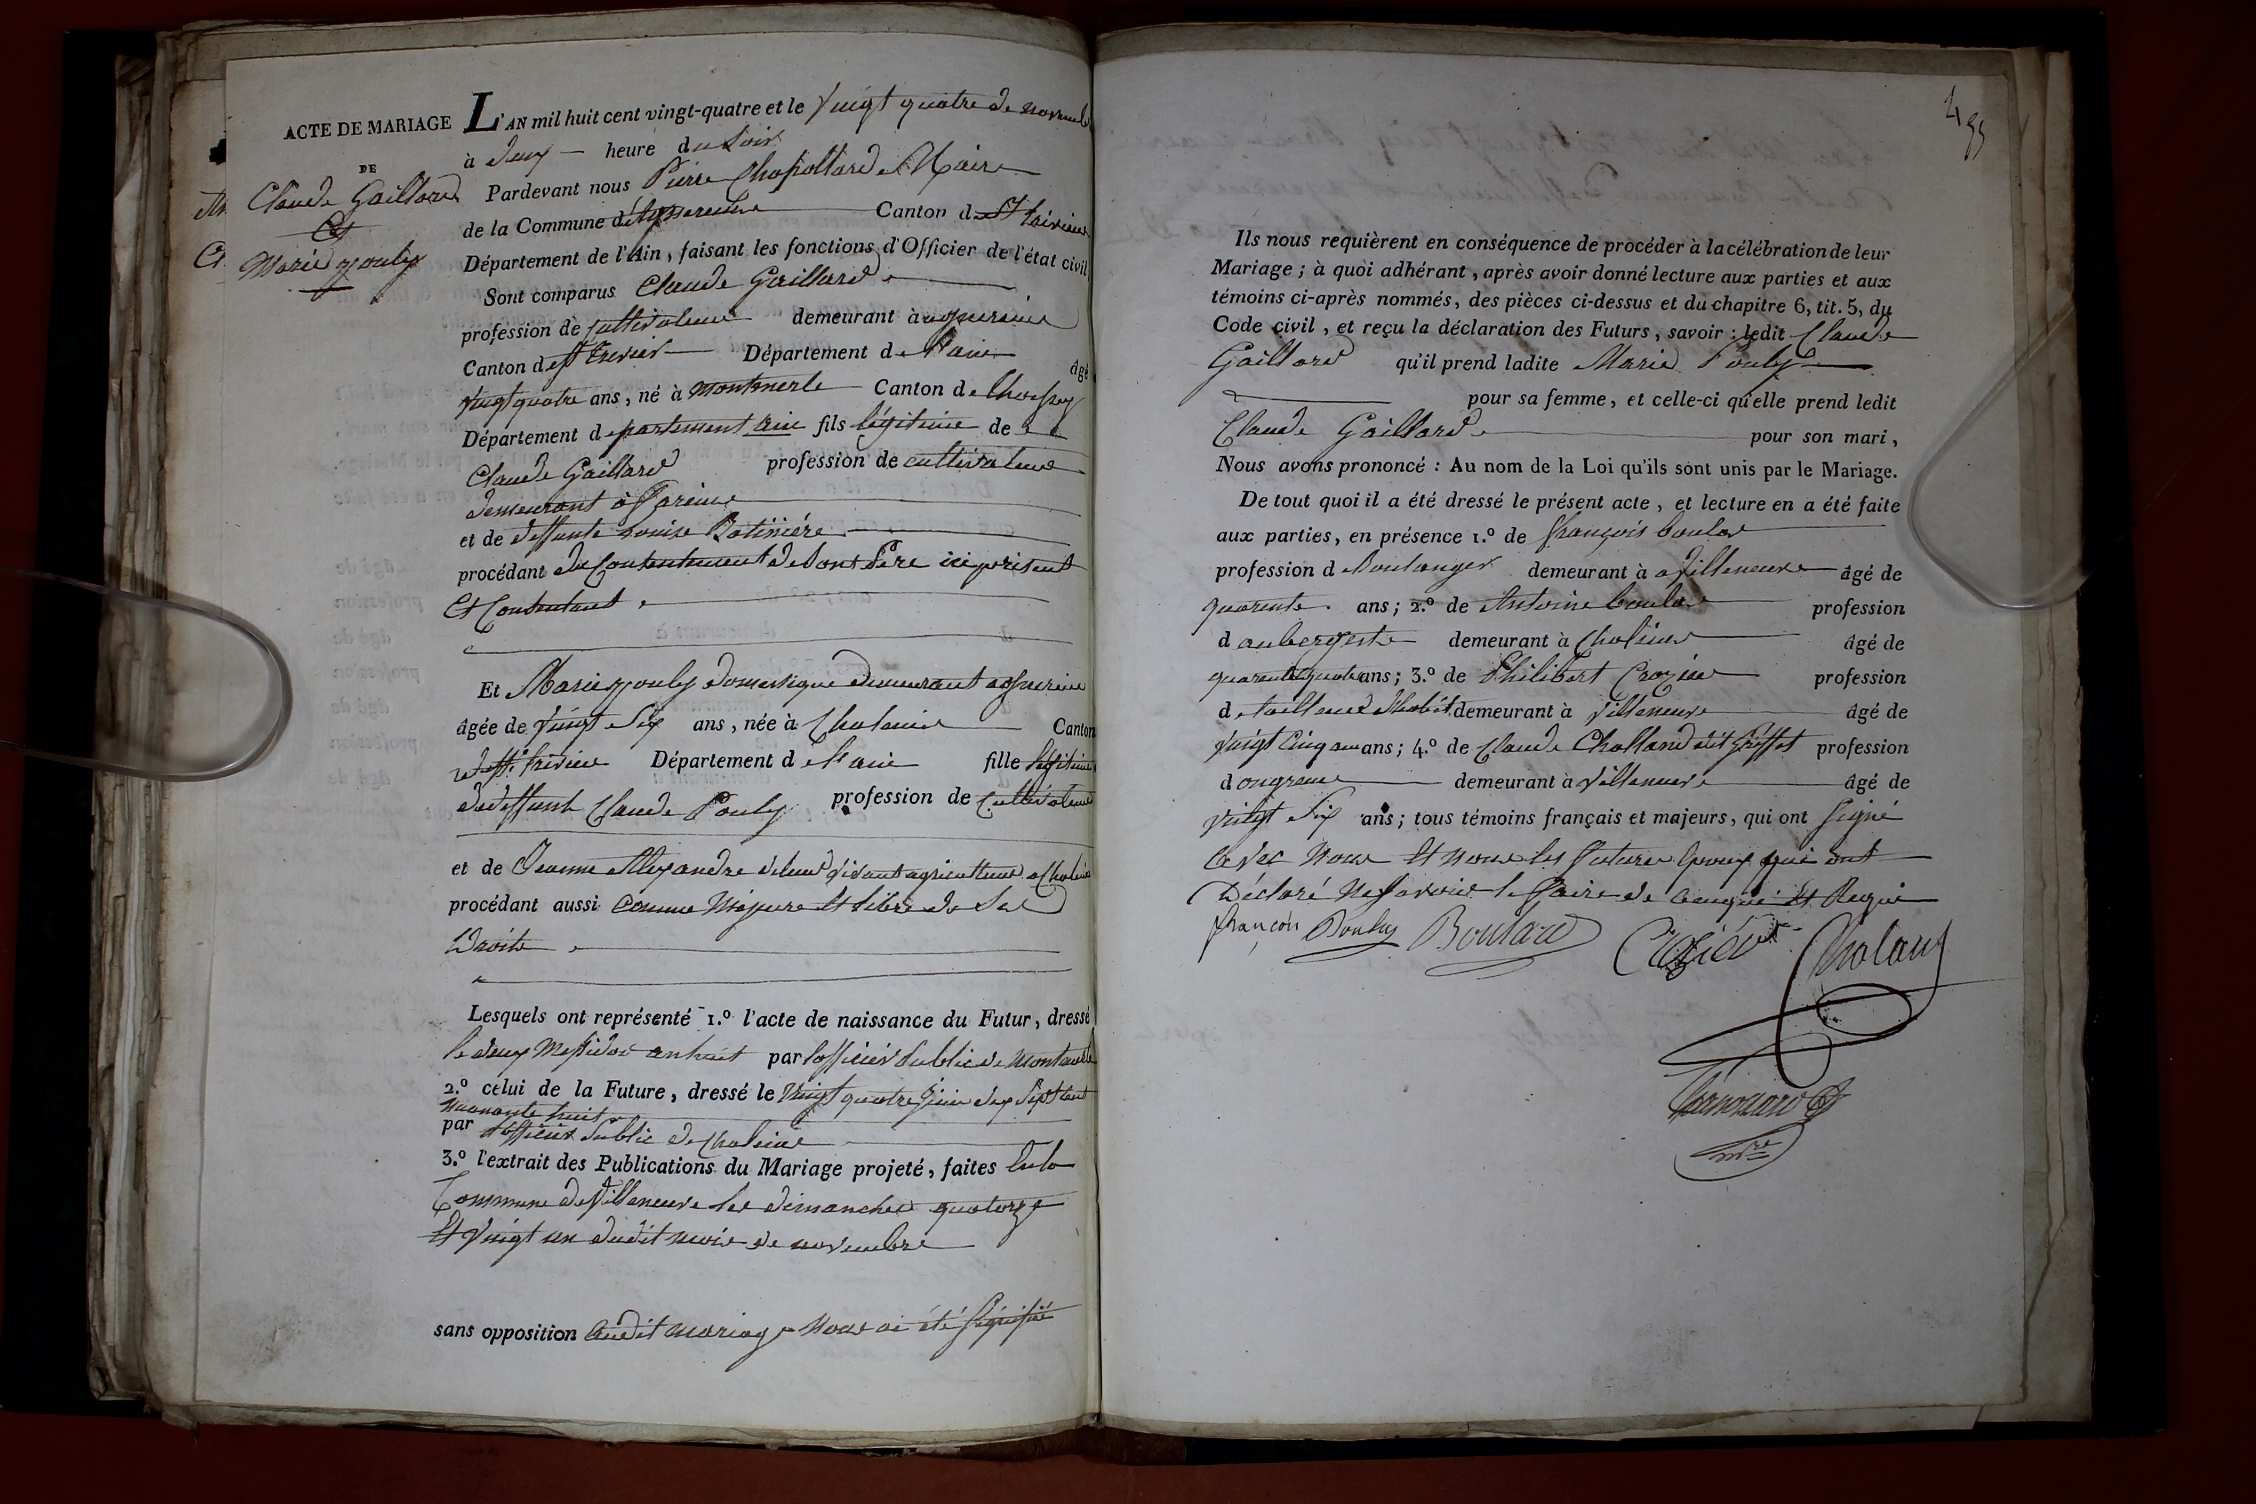 ACTE DE MARIAGE
DE
Claude Gaillard
Et
Marie pouly
L'AN mil huit cent vingt-quatre et le Vingt quatre de novembre
à deux heure du soir
Pardevant nous Pierre Maire
de la Commune d' Canton de St trivier
Département de l'Ain, faisant les fonctions d'Officier de l'état civil
Sont comparus Claude Gaillard
profession de cultivateur demeurant à agnereins
Canton de St trivier Département de l'ain âgé
vingt quatre ans, né à montmerle Canton de thoissey
Département departement ain fils légitime de
Claude Gaillard profession de cultivateur
demeurant à fareins
et de deffunte Louise
procédant du Consentement de Sont Père ici présent
Et Consentant
Et Marie pouly domestique demeurant agnereins
âgée de vingt Six ans, née à Chaleins Canton
de St trivier Département de l'ain fille légitime
de deffunt Claude Pouly profession de Cultivateur
et de Jeanne Alexandre vivant agriculteur a Chaleins
procédant aussi Comme Majeure Et libre de Ses
Droits
Lesquels ont représenté 1.º l'acte de naissance du Futur, dressé
le deux Messidor an huit par l'officier Public de Montmerle
2.º celui de la Future, dressé le Vingt quatre juin dix Sept Cent
nonante huit
par l'officier Public de Chaleins
3.º l'extrait des Publications du Mariage projeté, faites En la
Commune de Villeneuve les dimanches quatorze
Et Vingt un dudit mois de novembre
sans opposition Audit mariage Nous ai été Signifié
Ils nous requièrent en conséquence de procéder à la célébration de leur
Mariage; à quoi adhérant, après avoir donné lecture aux parties et aux
témoins ci-après nommés, des pièces ci-dessus et du chapitre 6, tit. 5, du
Code civil, et reçu la déclaration des Futurs, savoir: ledit Claude
Gaillard qu'il prend ladite Marie Pouly
pour sa femme, et celle-ci qu'elle prend ledit
Claude Gaillard pour son mari,
Nous avons prononcé: Au nom de la Loi qu'ils sont unis par le Mariage.
De tout quoi il a été dressé le présent acte, et lecture en a été faite
aux parties, en présence 1.º de françois
profession d Boulanger demeurant à a Villeneuve âgé de
quarente ans; 2.º de Antoine profession
d aubergiste demeurant à Chaleins âgé de
quarente quatre ans; 3.º de Philibert Crozier profession
de tailleur d'habit demeurant à Villeneuve âgé de
vingt Cinq ans; 4.º de Claude Cholland dit profession
d demeurant à Villeneuve âgé de
vingt Six ans; tous témoins français et majeurs, qui ont Signé
avec Nous Et Non les futurs Epoux qui ont
Déclaré Ne Savoir le faire de Ce Enquis Et Requis
françois Boulard Crozier Choland
mre